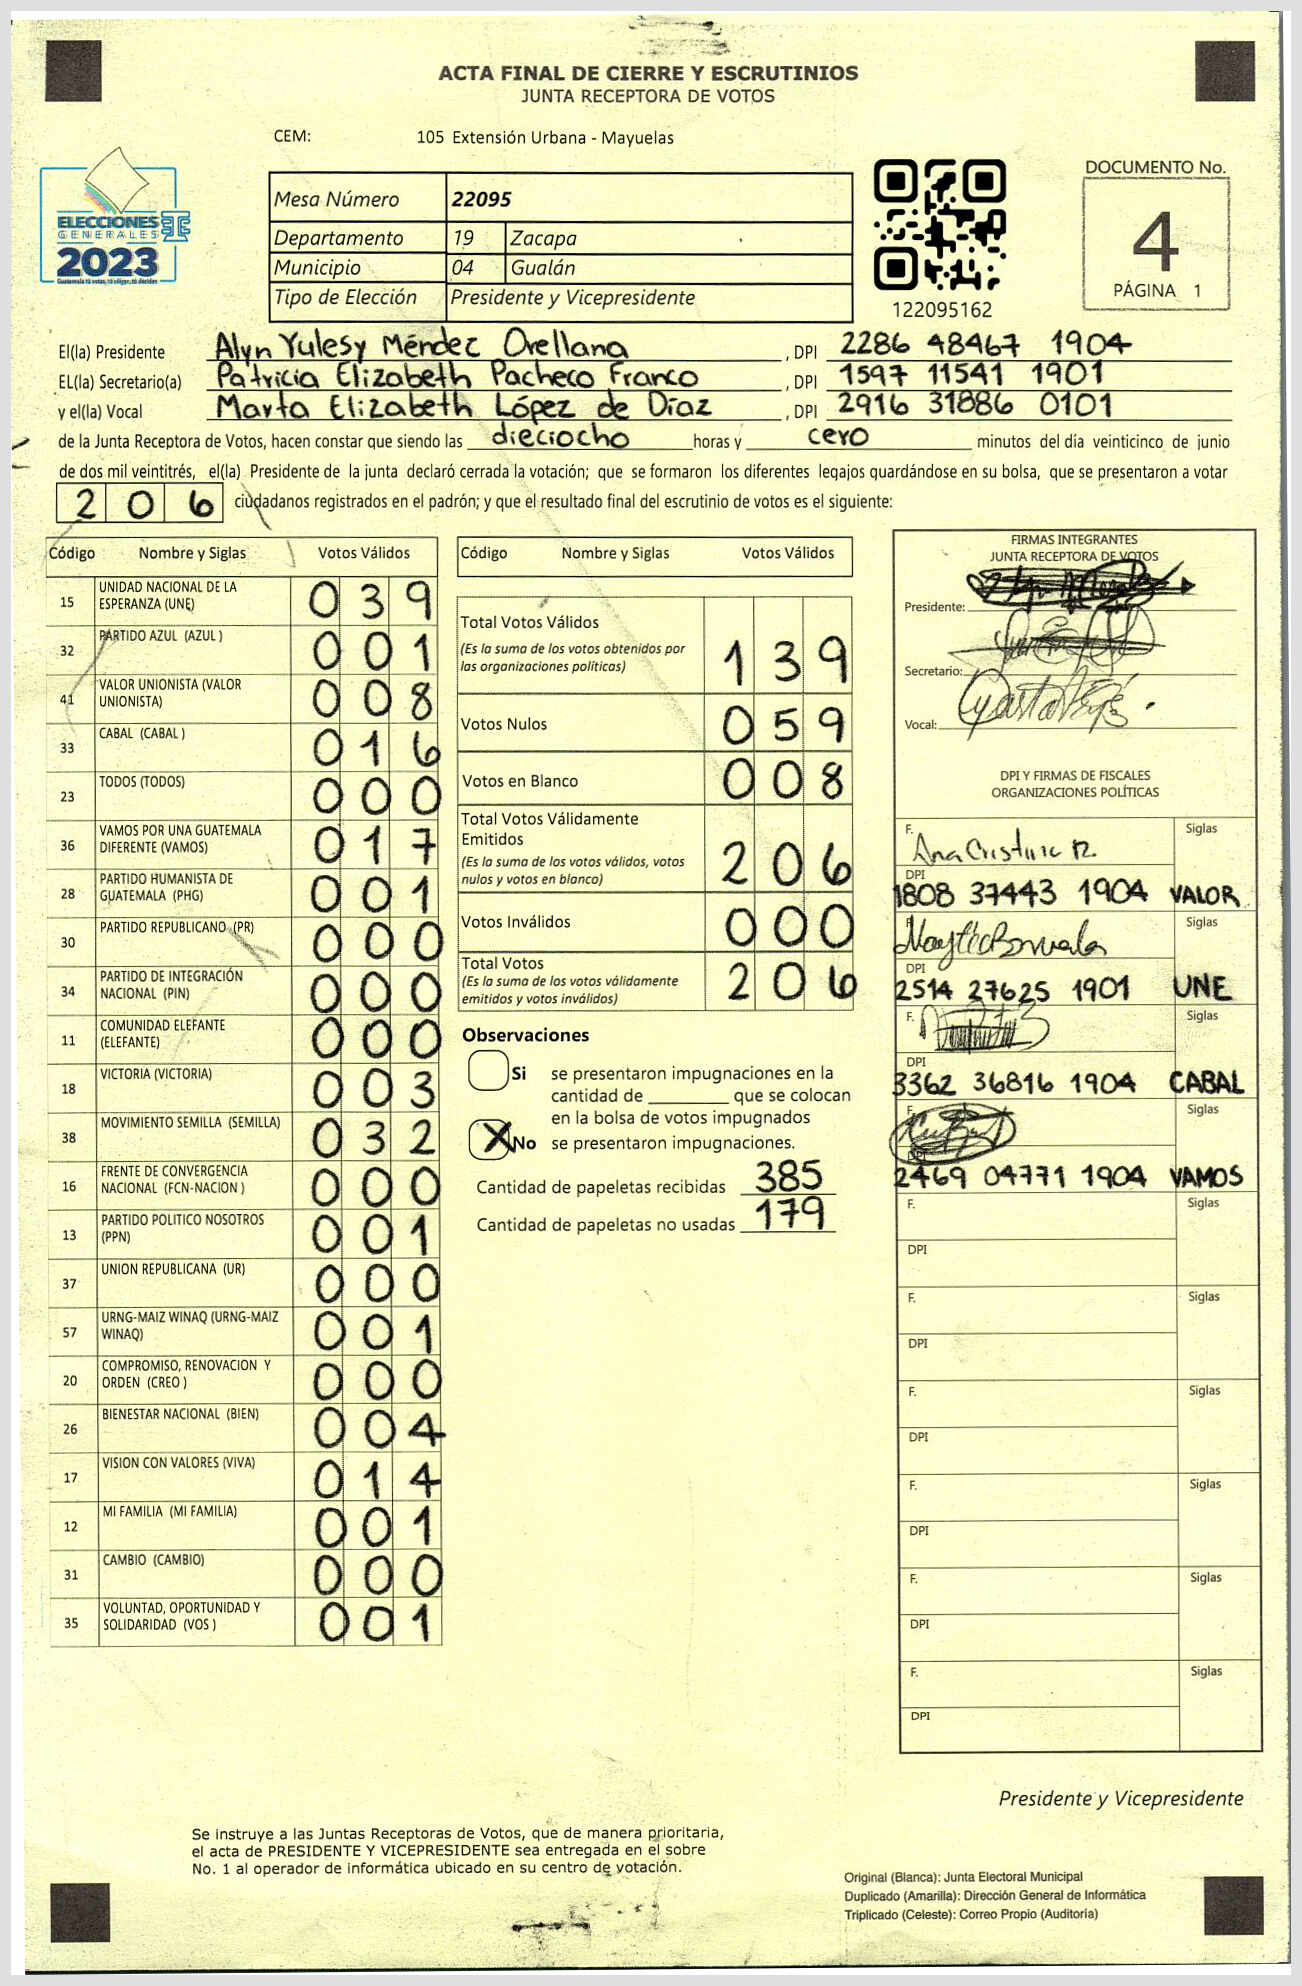 ACTA FINAL DE CIERRE Y ESCRUTINIOS
JUNTA RECEPTORA DE VOTOS
CEM: 105 Extensión Urbana - Mayuelas
ELECCIONES
GENERALES
2023
Guatemala tú votas, tú eliges, tú decides
Mesa Número 22095
Departamento 19 Zacapa
Municipio 04 Gualán
Tipo de Elección Presidente y Vicepresidente
122095162
DOCUMENTO No.
4
PÁGINA 1
El(la) Presidente Alyn Yulesy Méndez Orellana , DPI 2286 48467 1904
EL(la) Secretario(a) Patricia Elizabeth Pacheco Franco , DPI 1597 11541 1901
y el(la) Vocal Marta Elizabeth López de Díaz , DPI 2916 31886 0101
de la Junta Receptora de Votos, hacen constar que siendo las dieciocho horas y cero minutos del día veinticinco de junio
de dos mil veintitrés, el(la) Presidente de la junta declaró cerrada la votación; que se formaron los diferentes legajos guardándose en su bolsa, que se presentaron a votar
206 ciudadanos registrados en el padrón; y que el resultado final del escrutinio de votos es el siguiente:
Código Nombre y Siglas Votos Válidos
15 UNIDAD NACIONAL DE LA ESPERANZA (UNE) 039
32 PARTIDO AZUL (AZUL ) 001
41 VALOR UNIONISTA (VALOR UNIONISTA) 008
33 CABAL (CABAL ) 016
23 TODOS (TODOS) 000
36 VAMOS POR UNA GUATEMALA DIFERENTE (VAMOS) 017
28 PARTIDO HUMANISTA DE GUATEMALA (PHG) 001
30 PARTIDO REPUBLICANO (PR) 000
34 PARTIDO DE INTEGRACIÓN NACIONAL (PIN) 000
11 COMUNIDAD ELEFANTE (ELEFANTE) 000
18 VICTORIA (VICTORIA) 003
38 MOVIMIENTO SEMILLA (SEMILLA) 032
16 FRENTE DE CONVERGENCIA NACIONAL (FCN-NACION ) 000
13 PARTIDO POLITICO NOSOTROS (PPN) 001
37 UNION REPUBLICANA (UR) 000
57 URNG-MAIZ WINAQ (URNG-MAIZ WINAQ) 001
20 COMPROMISO, RENOVACION Y ORDEN (CREO ) 000
26 BIENESTAR NACIONAL (BIEN) 004
17 VISION CON VALORES (VIVA) 014
12 MI FAMILIA (MI FAMILIA) 001
31 CAMBIO (CAMBIO) 000
35 VOLUNTAD, OPORTUNIDAD Y SOLIDARIDAD (VOS ) 001
Código Nombre y Siglas Votos Válidos
Total Votos Válidos 139
(Es la suma de los votos obtenidos por
las organizaciones políticas)
Votos Nulos 059
Votos en Blanco 008
Total Votos Válidamente
Emitidos 206
(Es la suma de los votos válidos, votos
nulos y votos en blanco)
Votos Inválidos 000
Total Votos 206
(Es la suma de los votos válidamente
emitidos y votos inválidos)
Observaciones
Si se presentaron impugnaciones en la
cantidad de ________ que se colocan
en la bolsa de votos impugnados
X No se presentaron impugnaciones.
Cantidad de papeletas recibidas 385
Cantidad de papeletas no usadas 179
FIRMAS INTEGRANTES
JUNTA RECEPTORA DE VOTOS
Presidente:
Secretario:
Vocal:
DPI Y FIRMAS DE FISCALES
ORGANIZACIONES POLÍTICAS
F. Ana Cristina R. Siglas
DPI
1808 37443 1904 VALOR
F. Siglas
DPI
2514 27625 1901 UNE
F. Siglas
DPI
3362 36816 1904 CABAL
F. Siglas
DPI
2469 04771 1904 VAMOS
F. Siglas
DPI
F. Siglas
DPI
F. Siglas
DPI
F. Siglas
DPI
F. Siglas
DPI
F. Siglas
DPI
Presidente y Vicepresidente
Se instruye a las Juntas Receptoras de Votos, que de manera prioritaria,
el acta de PRESIDENTE Y VICEPRESIDENTE sea entregada en el sobre
No. 1 al operador de informática ubicado en su centro de votación.
Original (Blanca): Junta Electoral Municipal
Duplicado (Amarilla): Dirección General de Informática
Triplicado (Celeste): Correo Propio (Auditoría)